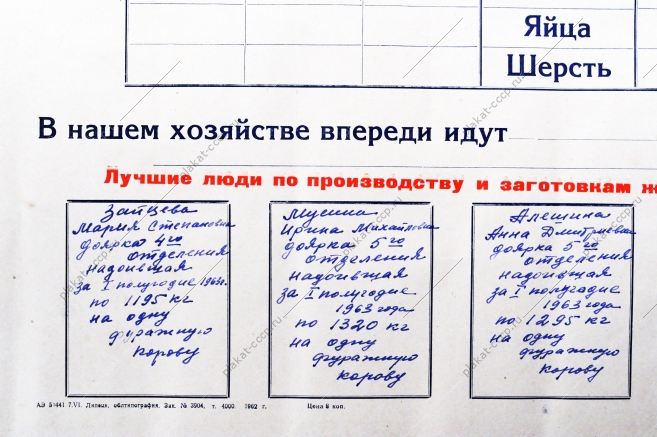 Яйца
Шерсть
В нашем хозяйстве впереди идут
Лучшие люди по производству и заготовкам ж
Зайцева
Мария Степановна
доярка 4го
отделения
надоившая
за I полугодие 1963г.
по 1195 кг
на одну
фуражную
корову
Мусина
Ирина Михайловна
доярка 5го
отделения
надоившая
за I полугодие
1963 года
по 1320 кг
на одну
фуражную
корову
Алешина
Анна Дмитриевна
доярка 5го
отделения
надоившая
за I полугодие
1963 года
по 1295 кг
на одну
фуражную
корову
АЭ 51441 7.VI. Липецк. облтипография. Зак. № 3904, т. 4000. 1962 г. Цена 8 коп.
plakat-cccp.ru